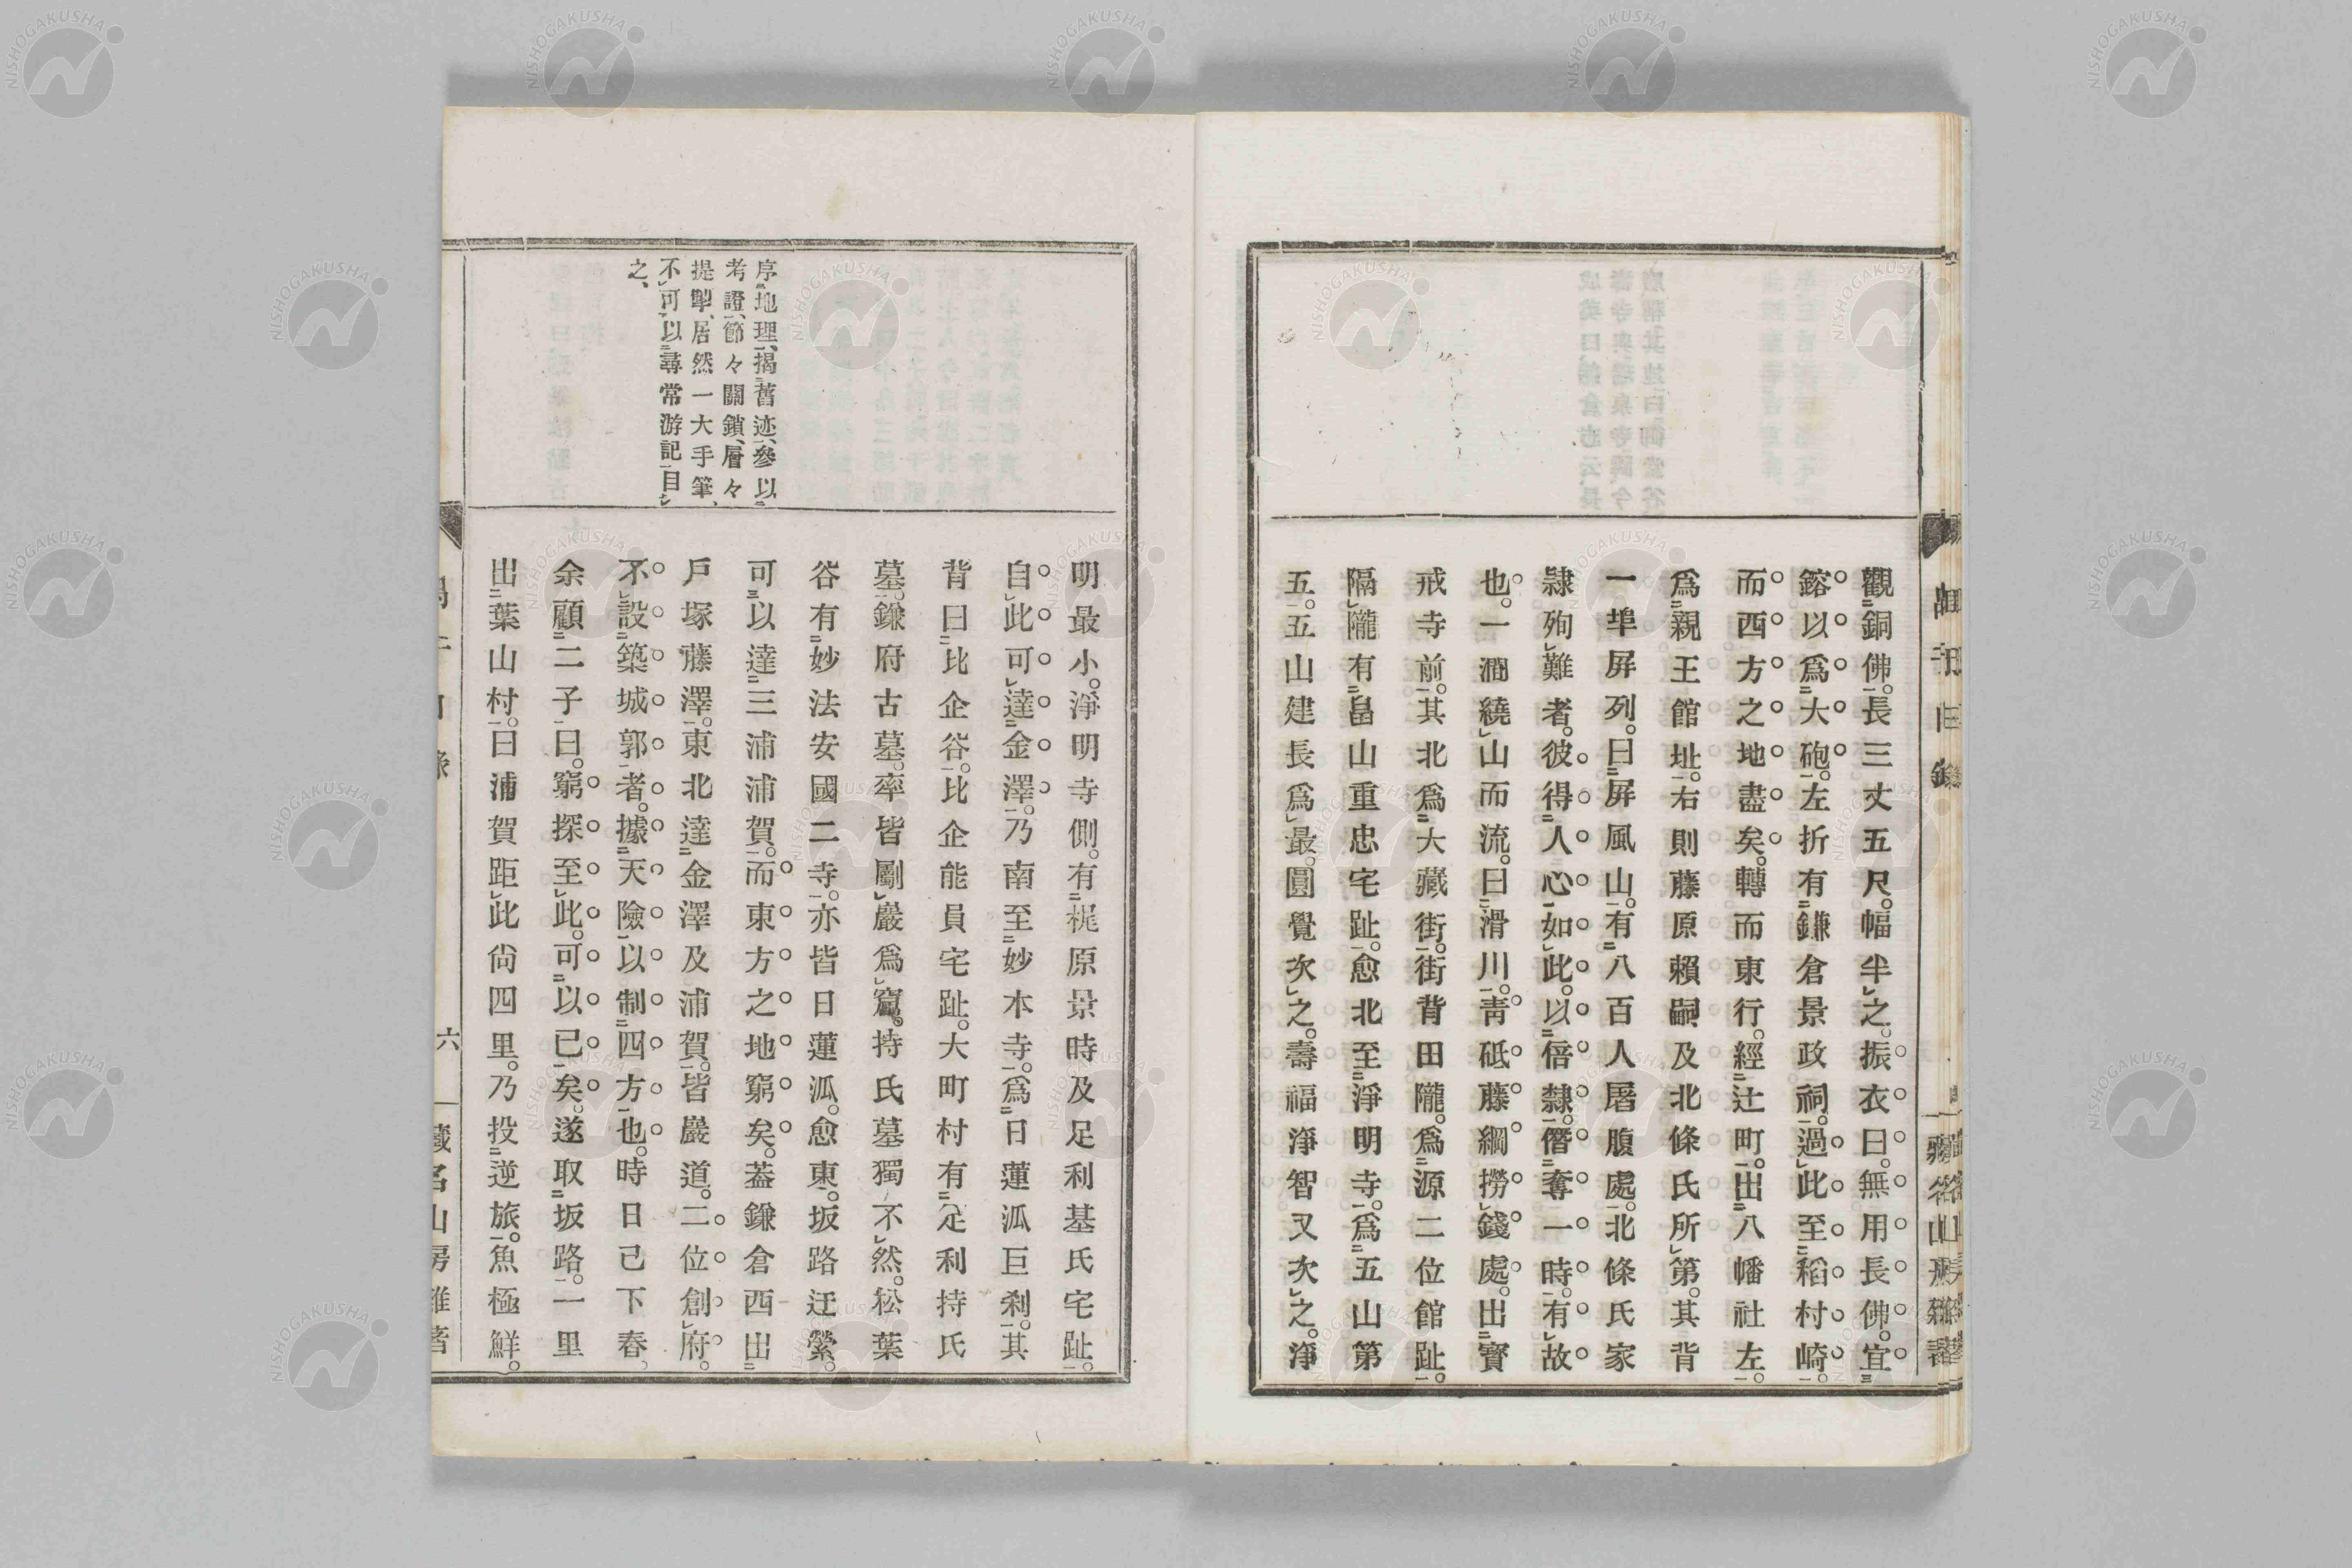 觀銅佛。長三丈五尺。幅半之。振衣曰。無用長佛。宜
鎔以爲大砲。左折有鎌倉景政祠。過此至稻村崎。
而西方之地盡矣。轉而東行。經辻町。出八幡社左。
爲親王館址。右則藤原賴嗣及北條氏所第。其背
一埠屏列。曰屏風山。有八百人屠腹處。北條氏家
隷殉難者。彼得人心如此。以倍隸僭奪一時。有故
也。一澗繞山而流。曰滑川。靑砥藤綱撈錢處。出寳
戒寺前。其北爲大藏街。街背田隴。爲源二位館趾。
隔隴有畠山重忠宅趾。愈北至淨明寺。爲五山第
五。五山建長爲最。圓覺次之。壽福淨智又次之。淨
序地理、揭舊迹、參以
考證、節々關鎖、層々
提掣、居然一大手筆、
不可以尋常游記目
之、
明最小。淨明寺側。有梶原景時及足利基氏宅趾。
自此可達金澤。乃南至妙本寺。爲日蓮派巨刹。其
背曰比企谷。比企能員宅趾。大町村有足利持氏
墓。鎌府古墓。率皆劚巖爲窟。持氏墓獨不然。松葉
谷有妙法安國二寺。亦皆日蓮派。愈東。坂路迂縈。
可以達三浦浦賀。而東方之地窮矣。葢鎌倉西出
戶塚藤澤。東北達金澤及浦賀。皆巖道。二位創府。
不設築城郭者。據天險以制四方也。時日已下舂。
余顧二子曰。窮探至此。可以已矣。遂取坂路。一里
出葉山村。曰浦賀距此尙四里。乃投逆旅。魚極鮮。
六
藏名山房雜著